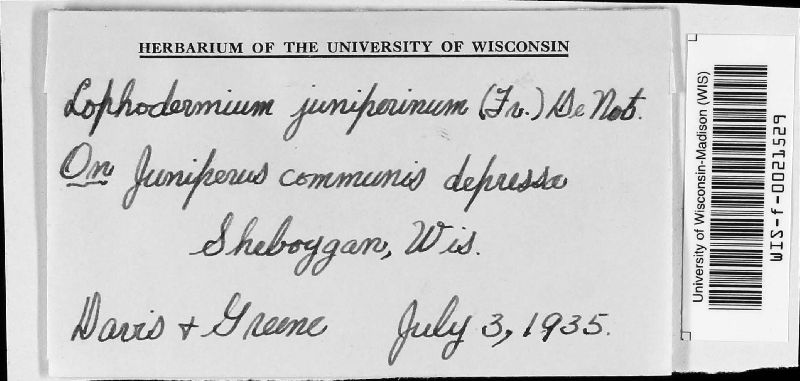 HERBARIUM OF THE UNIVERSITY OF WISCONSIN
Lophodermium juniperinum (Fr.) De Not.
On Juniperus communis depressa
Sheboygan, Wis.
Davis + Greene July 3, 1935.
University of Wisconsin-Madison (WIS)
WIS-f-0021529